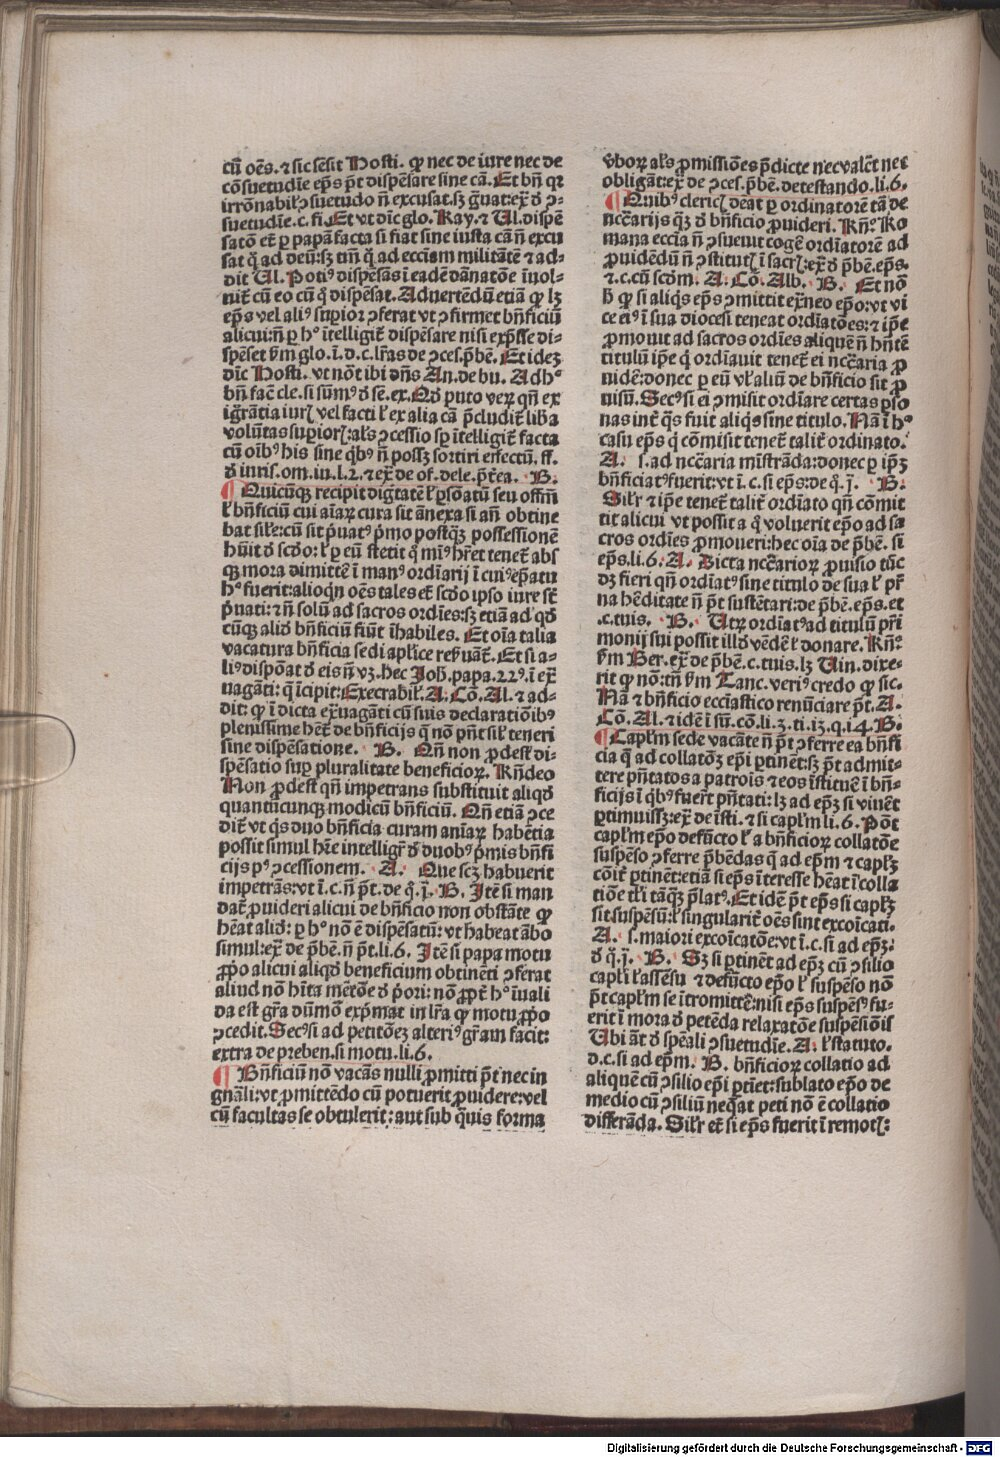 cū oēs. ⁊ sic sēsit Hosti. ꝙ nec de iure nec de
cōsuetudīe ep̄s pōt dispēsare sine cā. Et bn̄ qꝛ
irrōnabil' ꝯsuetudo n̄ excusat. sꝫ g̃uat: ex̄ d̓ ꝯ-
suetudīe. c. fi. Et vt dīc glo. Ray. ⁊ Ul. dispē
satō et̄ ꝑ papā facta si fiat sine iusta cā n̄ excu
sat q̄ ad deū: sꝫ tm̄ q̄ ad eccīam militātē ⁊ ad-
dit Ul. Potiꝰ dispēsās ī eadē dānatōe īuol-
nit̄ cū eo cū q̄ dispēsat. Aduertēdū etiā ꝙ lꝫ
ep̄s vel aliꝰ supior ꝯferat vt ꝯfirmet bn̄ficiū
alicui: n̄ ꝑ hº ītelligit̄ dispēsare nisi exp̄sse di-
spēset km̄ glo. ī. d. c. lr̄as de ꝯces. p̄bē. Et ideꝫ
dīc Hosti. vt nōt ibi dn̄s An. de bu. Ad hº
bn̄ fac̄ cle. si sūmꝰ d̓ sē. ex. Qd̓ puto verꝫ qn̄ ex
igrātia iurꝭ vel facti ł ex alia cā p̄cludit̄ liba
volūtas supiorꝭ: als̄ ꝯcessio sp̄ ītelligit̄ facta
cū oībꝰ his sine qbꝰ n̄ possꝫ sortiri effectū. ff.
d̓ iuris. om. iu. l. 2. ⁊ ex̄ de of. dele. p̄t̄ea. B.
¶ Quicūqꝫ recipit dig̃tatē ł p̄soātū seu offm̄
ł bn̄ficiū cui aīaꝝ cura sit ānexa si an̄ obtine
bat sile: cū sit p̄uatꝰ p̄mo postqꝫ possessionē
huīt d̓ scd̓o: ł ꝑ eū stetit q̄ miꝰ hr̄et tenet̄ abs
qꝫ mora dimittē ī manꝰ ordīarij ī cuiꝰ ep̄atu
hº fuerit: alioqn oēs tales et̄ scd̓o ipso iure st̄
p̄uati: ⁊ n̄ solū ad sacros ordīes: sꝫ etiā ad qd̓
cūqꝫ aliд bn̄ficiū fiūt īhabiles. Et oīa talia
vacatura bn̄ficia sedi aplīce reß̄uāt. Et si a-
liꝰ dispōat d̓ eis n̄ vꝫ. hec Joh̄. papa. 22ꝰ. ī ex̄
uagāti: q̄ īcipit: Execrabil. A. Cō. Al. ⁊ ad-
dit: ꝙ ī dicta ex̄uagāti cū suis declaratiōibꝰ
plenissime het̄ de bn̄ficijs q̄ nō pn̄t sil' teneri
sine dispēsatione. B. Qn̄ non ꝓdest di-
spēsatio sup pluralitate beneficioꝝ. Rn̄deo
Non ꝓdest qn̄ impetrans substituit aliqd̓
quantūcunqꝫ modicū bn̄ficiū. Qn̄ etiā ꝯce
dit̄ vt q̄s duo bn̄ficia curam aīarꝝ habētia
possit simul hr̄e intelligr̄ d̓ duobꝰ p̄mis bn̄fi
cijs pꝰ ꝯcessionem. A. Que scꝫ habuerit
impetrās: vt ī. c. n̄ p̄t. de q̄. ī. B. Itē si man
dat̄ ꝓuideri alicui de bn̄ficio non obstāte ꝙ
hēat aliд: ꝑ hº nō ē dispēsatū: vt habeat ābo
simul: ex̄ de p̄bē. n̄ p̄t. li. 6. Itē si papa motu
ꝓpo alicui aliqd̓ beneficium obtinēti ꝯferat
aliud nō hīta mētōe d̓ p̄ori: nō ꝓpt̄ hº īuali
da est gr̄a dūmō exp̄mat in lr̄a ꝙ motu ꝓpo
ꝯcedit. Secꝰ si ad petitōeꝫ alteriꝰ gr̄am facit:
extra de preben. si motu. li. 6.
¶ Bn̄ficiū nō vacās nulli ꝓmitti p̄t nec in
gnāli: vt ꝓmittēdo cū potuerit ꝓuidere: vel
cū facultas se obtulerit: aut sub q̄uis forma
vboꝝ als̄ ꝓmissiōes p̄dicte nec valēt nec
obligāt: ex̄ de ꝯces. p̄bē. detestando. li. 6.
¶ Quibꝰ clericꝭ deāt ꝑ ordinatorē tā de
nc̄c̄arijs qꝫ d̓ bn̄ficio ꝓuideri. Rn̄º. Ro
mana eccīa n̄ ꝯsueuit cogē ordīatorē ad
ꝓuidēdū n̄ ꝯstitutꝭ ī sacrꝭ: ex̄ d̓ p̄bē. ep̄s.
⁊. c. cū scd̓m. A. Cō. Alb. B. Et nō
ħ ꝙ si aliq̄s ep̄s ꝯmittit ex̄neo ep̄o: vt vi
ce eiꝰ ī sua diocesi teneat ordīatōes: ⁊ ip̄e
ꝓmouit ad sacros ordīes aliquē n̄ hn̄tē
titulū ip̄e q̄ ordīauit tenet̄ ei nc̄c̄aria ꝓ
uidē: donec ꝑ eū vł aliū de bn̄ficio sit ꝓ
uisū. Secꝰ si ei ꝯmisit ordīare certas p̄so
nas int̄ q̄s fuit aliq̄s sine titulo. Nā ī hº
casu ep̄s q̄ cōmisit tenet̄ talit̄ ordinato.
A. s. ad nc̄c̄aria mīstrāda: donec ꝑ ip̄ꝫ
bn̄ficiatꝰ fuerit: vt ī. c. si ep̄s: de q̄. ī. B.
Silr̄ ⁊ ip̄e tenet̄ talit̄ ordīato qn̄ cōmit
tit alicui vt possit a q̄ voluerit ep̄o ad sa
cros ordīes ꝓmoueri: hec oīa de p̄bē. si
ep̄s. li. 6. A. Dicta nc̄c̄arioꝝ ꝓuisio tūc
dꝫ fieri qn̄ ordīatꝰ sine titulo de sua ł pr̄
na hēditate n̄ p̄t sustētari: de p̄bē. ep̄s. et
.c. tuis. B. Utꝝ ordīatꝰ ad titulū pr̄i
monij sui possit illд vēdē ł donare. Rn̄º.
km̄ Ber. ex̄ de p̄bē. c. tuis. lꝫ Uin. dixe-
rit ꝙ nō: tn̄ km̄ Tanc. veriꝰ credo ꝙ sic.
Nā ⁊ bn̄ficio ecclīastico renūciare p̄t. A.
Cō. Al. ⁊ idē ī sū. cō. li. 3. ti. i3. q. i4. B.
¶ Capłm sede vacāte n̄ p̄t ꝯferre ea bn̄fi
cia q̄ ad collatōꝫ ep̄i ꝑtinēt: sꝫ p̄t admit-
tere pn̄tatos a patroīs ⁊ eos īstituē ī bn̄-
ficijs ī qbꝰ fuer̄t pn̄tati: lꝫ ad ep̄ꝫ si viuēt
ꝑtinuissꝫ: ex̄ de īsti. ⁊ si capłm li. 6. Pōt
capłm ep̄o defūcto ł a bn̄ficioꝝ collatōe
suspēso ꝯferre p̄bēdas q̄ ad ep̄m ⁊ capłꝫ
cōit̄ ꝑtinēt: etiā si ep̄s īteresse hēat ī colla
tiōe tłi tāqꝫ p̄latꝰ. Et idē p̄t ep̄s si capłꝫ
sit suspēsū: ł singularit̄ oēs sint excoīcati.
A. s. maiori excoīcatōe: vt ī. c. si ad ep̄ꝫ:
d̓ q̄. ī. B. Sꝫ si ꝑtinēt ad ep̄ꝫ cū ꝯsilio
capłi ł assēsu ⁊ defūcto ep̄o ł suspēso nō
p̄t capłm se ītromittē: nisi ep̄s suspēsꝰ fu-
erit ī mora d̓ petēda relaxatōe suspēsiōis
Ubi āt d̓ sp̄eāli ꝯsuetudīe. A. ł statuto.
d. c. si ad ep̄m. B. bn̄ficioꝝ collatio ad
aliquē cū ꝯsilio ep̄i ꝑtīet: sublato ep̄o de
medio cū ꝯsiliū neq̄at peti nō ē collatio
differāda. Silr̄ et̄ si ep̄s fuerit ī remotꝭ:
Digitalisierung gefördert durch die Deutsche Forschungsgemeinschaft - DFG